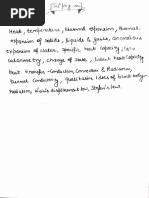 Heat, temperature, thermal expansion, thermal
expansion of solids, liquids & gases, anomalous
expansion of water, specific heat capacity,
calorimetry, change of state, latent heat capacity
heat transfer - Conduction, Convection & Radiation,
thermal conductivity, Qualitative ideas of black body
radiation, Wein's displacement law, Stefan's law.